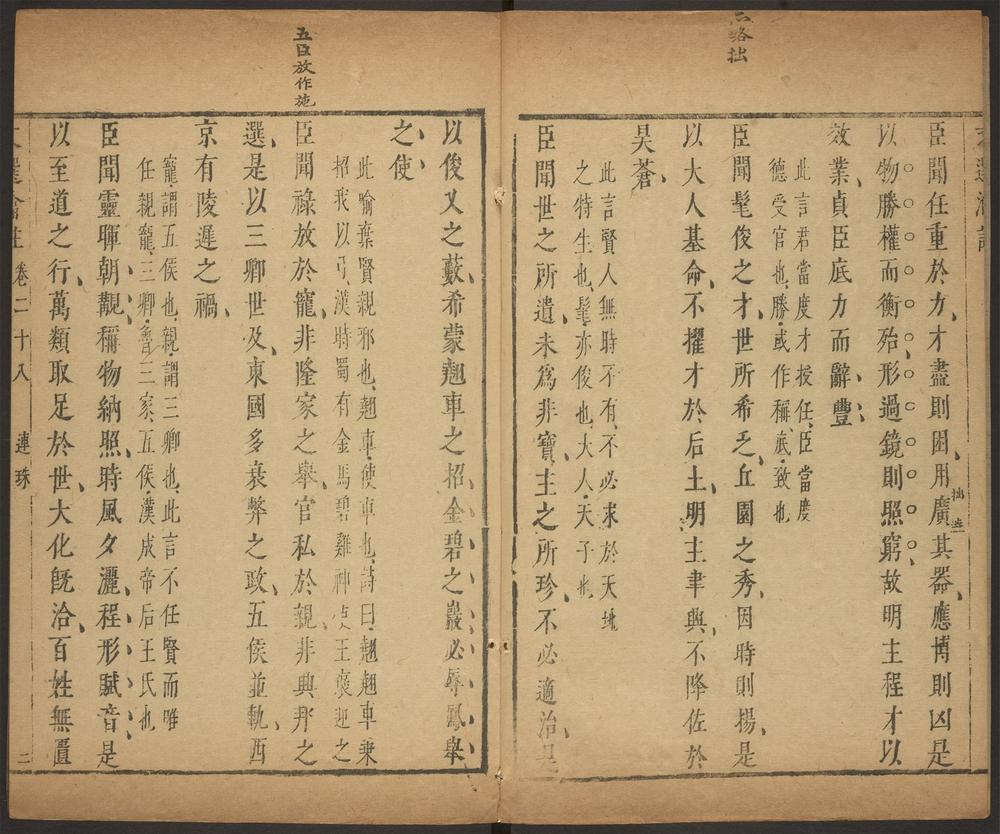 臣聞任重於力才盡則困用廣其器應博則凶是
以物勝權而衡殆形過鏡則照窮故明主程才以
效業貞臣底力而辭豐
此言君當度才授任臣當度
德受官也勝或作稱底致也
臣聞髦俊之才世所希乏丘園之秀因時則揚是
以大人基命不擢才於后土明主聿興不降佐於
昊蒼
此言賢人無時不有不必求於天地
之特生也髦亦俊也大人天子也
臣聞世之所遺未為非寶主之所珍不必適治是
五臣放作施
以俊乂之藪希蒙翹車之招金碧之巖必辱鳳舉
之使
此喻棄賢親邪也翹車使車也詩曰翹翹車乘
招我以弓漢時蜀有金馬碧雞神使王褒迎之
臣聞祿放於寵非隆家之舉官私於親非興邦之
選是以三卿世及東國多衰弊之政五侯並軌西
京有陵遲之禍
寵謂五侯也親謂三卿也此言不任賢而唯
任親寵三卿魯三家五侯漢成帝后王氏也
臣聞靈暉朝覯稱物納照時風夕灑程形賦音是
以至道之行萬類取足於世大化旣洽百姓無匱
卷二十八 連珠 二